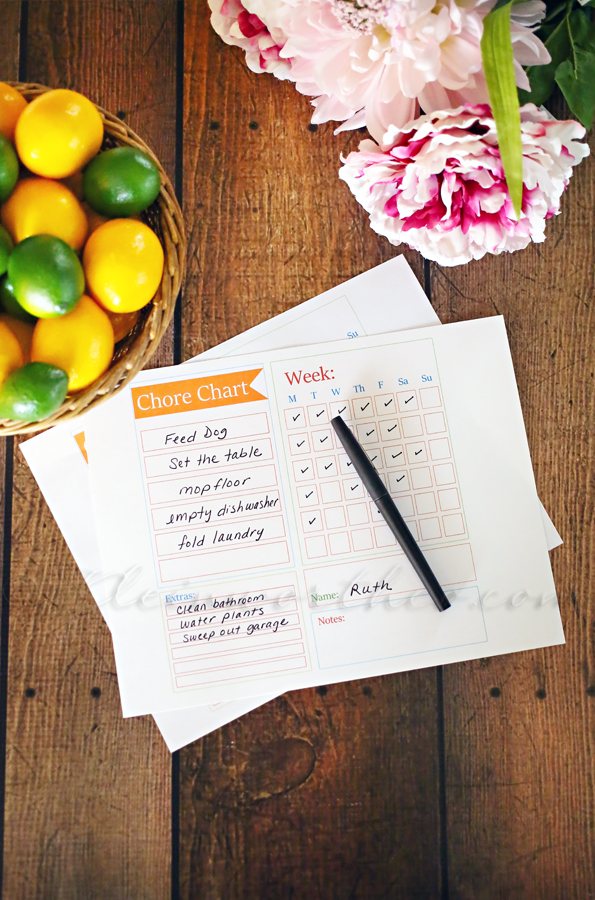 Su
Chore Chart
Feed Dog
Set the table
mop floor
empty dishwasher
fold laundry
Week:
M T W Th F Sa Su
Extras:
clean bathroom
water plants
sweep out garage
Name: Ruth
Notes: